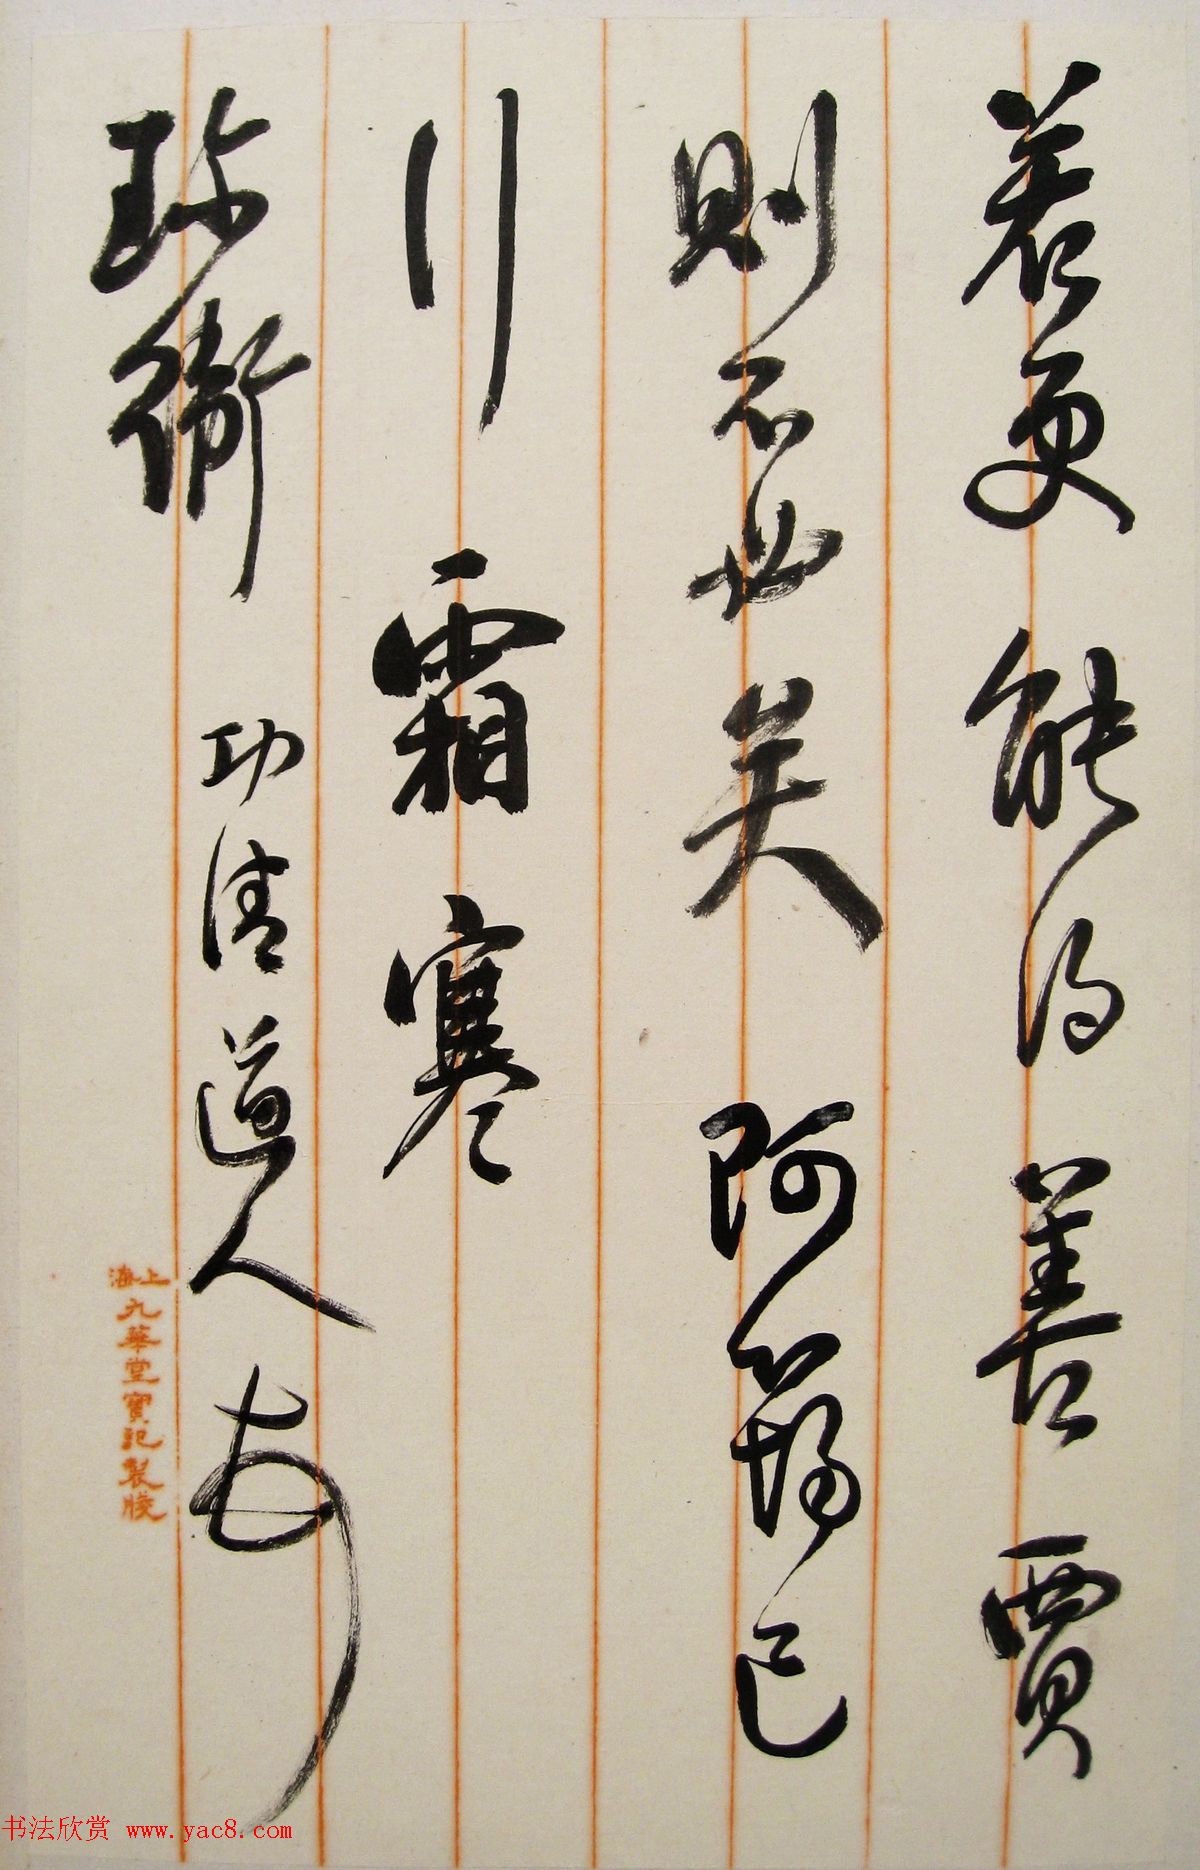 若更能得善賈
則不必矣阿筠已
行霜寒
珍衛功清道人
上海九華堂寶記製牋
书法欣赏 www.yac8.com